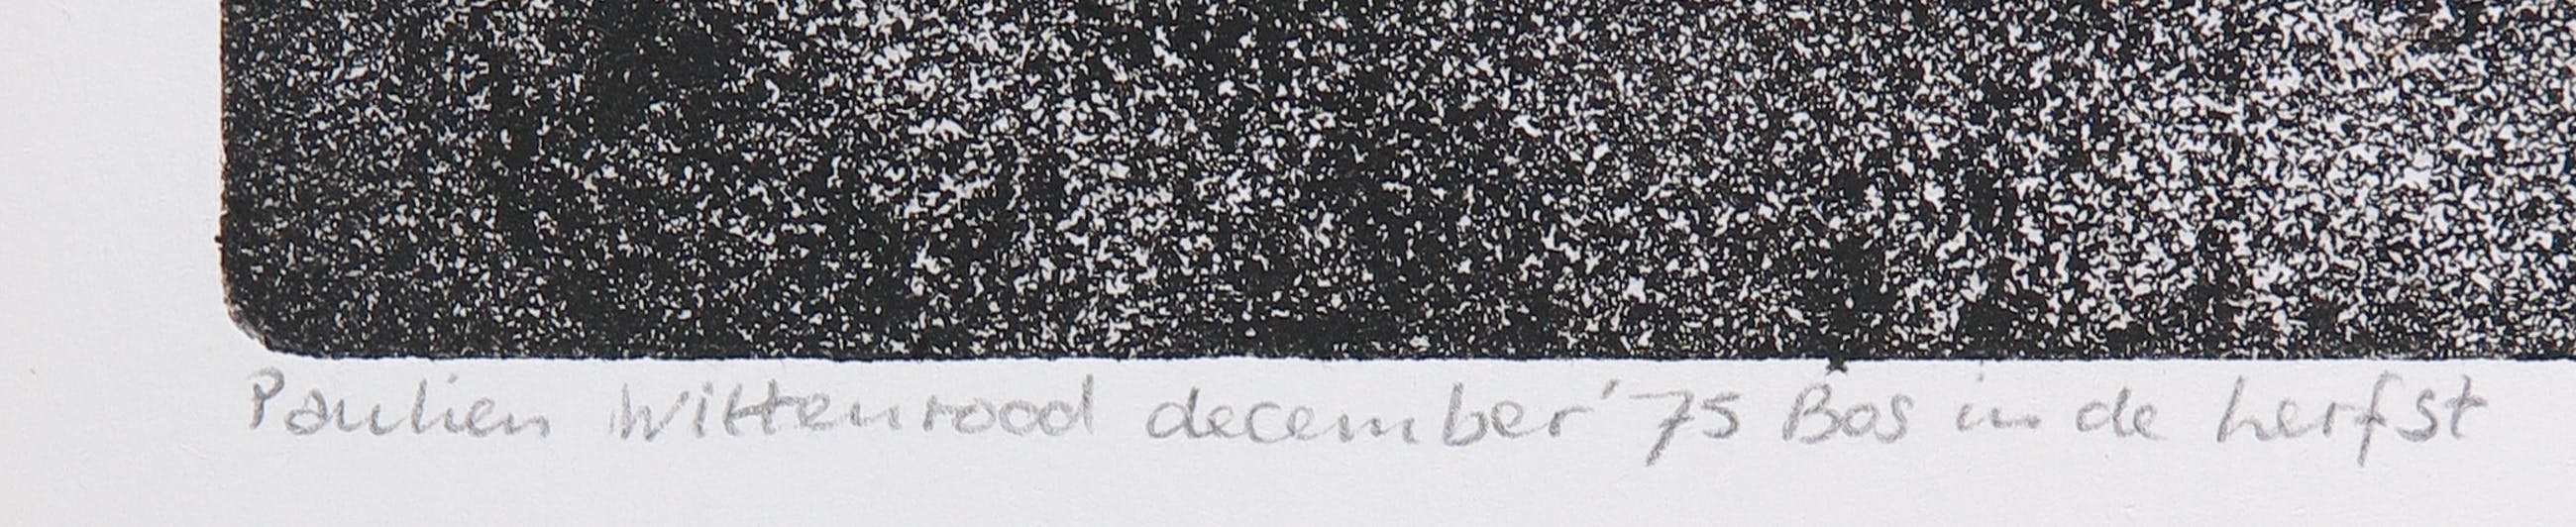 Paulien Wittenrood december '75 Bos in de herfst